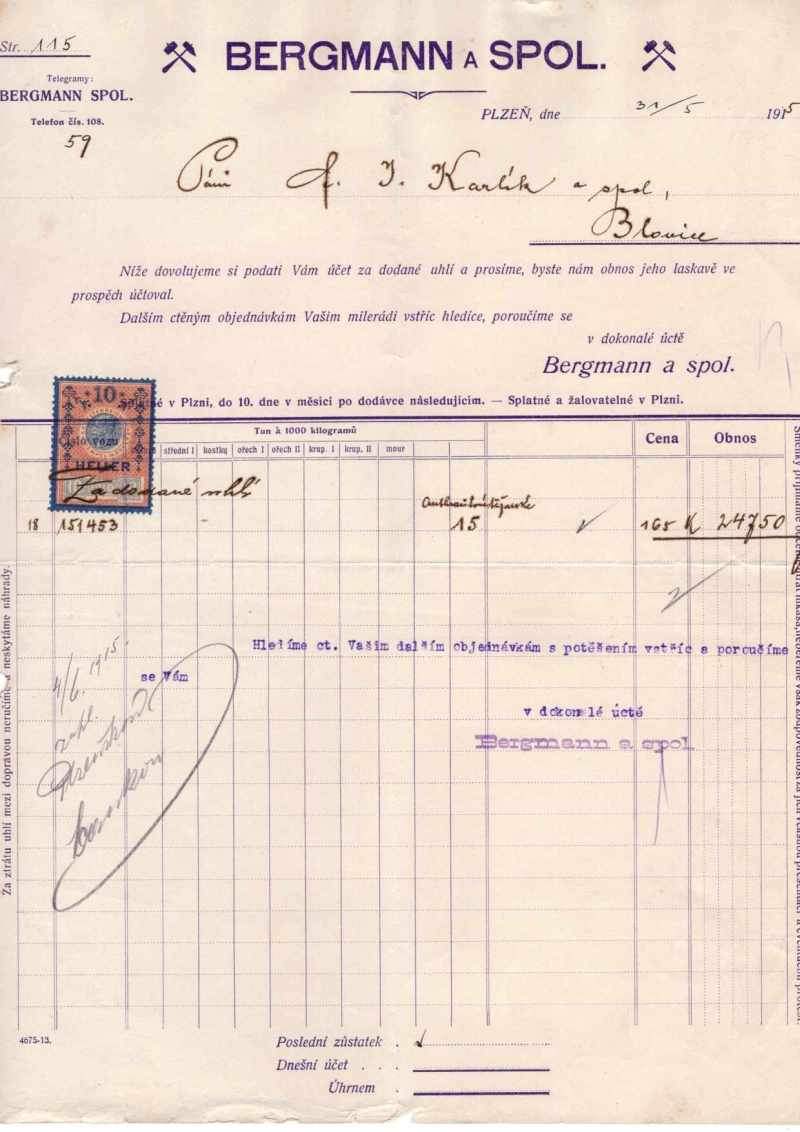 Str. 115
BERGMANN A SPOL.
Telegramy:
BERGMANN SPOL.
Telefon čís. 108.
59
PLZEŇ, dne 31/5 1915
Páni J. Karlík a spol,
Blovice
Níže dovolujeme si podati Vám účet za dodané uhlí a prosíme, byste nám obnos jeho laskavě ve
prospěch účtoval.
Dalším ctěným objednávkám Vašim milerádi vstříc hledíce, poroučíme se
v dokonalé úctě
Bergmann a spol.
v Plzni, do 10. dne v měsíci po dodávce následujícím. — Splatné a žalovatelné v Plzni.
10
HELLER
Číslo vozu
Tun à 1000 kilogramů
Cena
Obnos
střední I
kostky
ořech I
ořech II
krup. I
krup. II
mour
Za dodané uhlí
18 151453 15 165 K 24750
Hledíme ct. Vašim dalším objednávkám s potěšením vstříc a poroučíme
se Vám
v dokonalé úctě
Bergmann a spol
4/6. 1915.
Za ztrátu uhlí mezi dopravou neručíme a neskytáme náhrady.
4675-13.
Poslední zůstatek .
Dnešní účet . . .
Úhrnem .